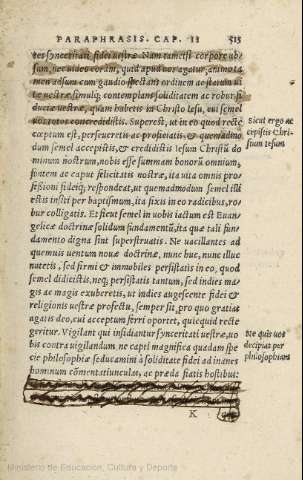 PARAPHRASIS. CAP. II 515
tes synceritati fidei uestræ. Nam tametsi corpore ab⸗
sum, nec uideo coram, quid apud uos agatur, animo ta
men adsum cum gaudio spectans ordinem ac statum ui
tæ uestræ simulq; contemplans soliditatem ac robur fi
duciæ uestræ, quam habetis in Christo Iesu, cui semel
uos totos concredidistis. Superest, ut in eo quod recte
cœptum est, perseueretis ac proficiatis, & quemadmo
dum semel accepistis, & credidistis Iesum Christũ do
minum nostrum, nobis esse summam bonorũ omnium,
fontem ac caput felicitatis nostræ, ita uita omnis pro
fessioni fideiq; respondeat, ut quemadmodum semel illi
estis insiti per baptismum, ita fixis in eo radicibus, ro⸗
bur colligatis. Et sicut semel in uobis iactum est Euan
gelicæ doctrinæ solidum fundamentũ, ita quæ tali fun⸗
damento digna sint superstruatis. Ne uacillantes ad
quemuis uentum nouæ doctrinæ, nunc huc, nunc illuc
nutetis, sed firmi & immobiles persistatis in eo, quod
semel didicistis, neq; persistatis tantum, sed indies ma⸗
gis ac magis exuberetis, ut indies augescente fidei &
religionis uestræ profectu, semper sit, pro quo gratias
agatis deo, cui acceptum ferri oportet, quicquid recte
geritur. Vigilant qui insidiantur synceritati uestræ, uo
bis contra uigilandum ne capti magnifica quadam spe
cie philosophiæ seducamini à soliditate fidei ad inanes
hominum cõmentatiunculas, ac præda fiatis hostibus:
K
Sicut ergo ac
cepistis Chri⸗
stum Iesum
Ne quis uos
decipiat per
philosophiam
Ministerio de Educación, Cultura y Deporte